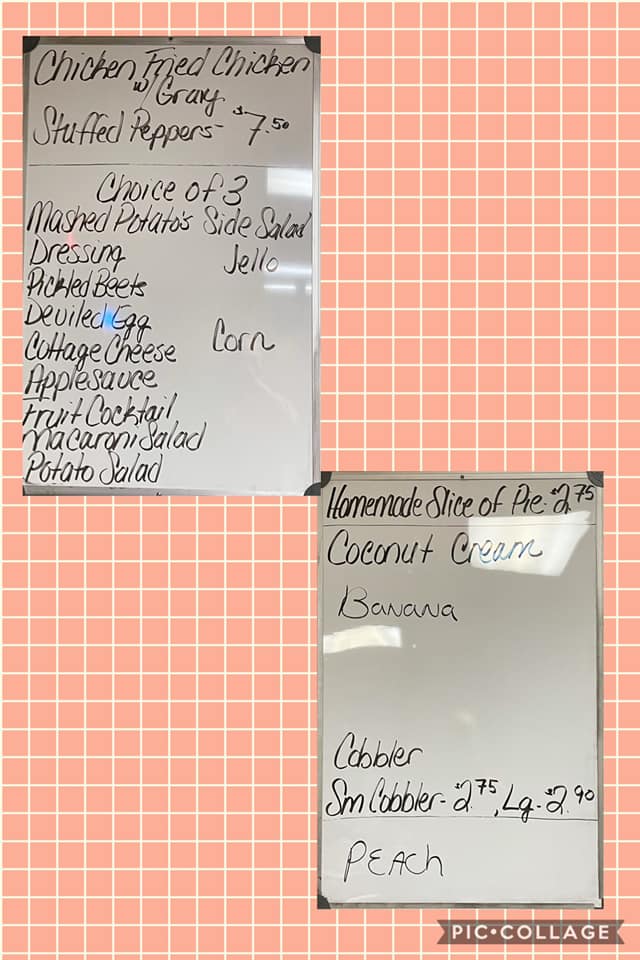 Chicken Fried Chicken
w/ Gravy
Stuffed Peppers- $7.50
Choice of 3
Mashed Potato's Side Salad
Dressing
Jello
Pickled Beets
Deviled Egg
Corn
Cottage Cheese
Applesauce
Fruit Cocktail
Macaroni Salad
Potato Salad
Homemade Slice of Pie-$2.75
Coconut Cream
Banana
Cobbler
Sm Cobbler-$2.75, Lg-$2.90
PEACh
PIC•COLLAGE